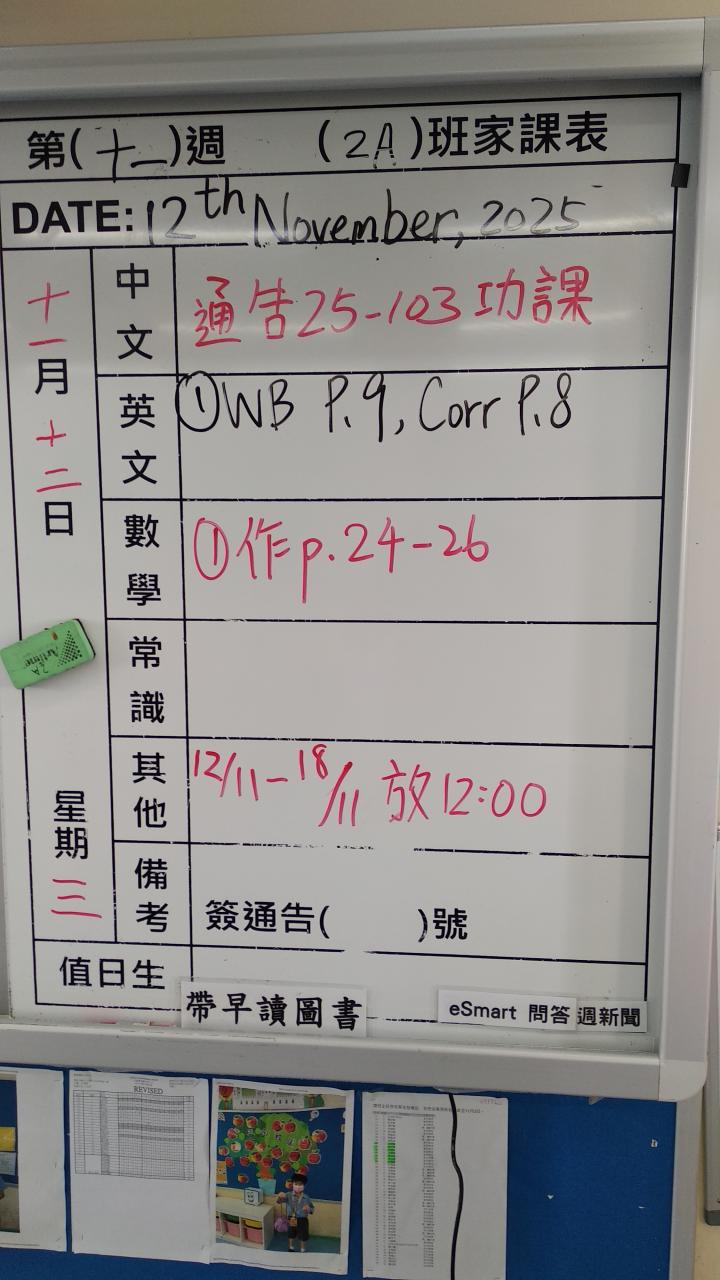 第(十一)週 (2A)班家課表
DATE: 12th November, 2025
十一月十二日
星期三
中文 通告25-103功課
英文 ①WB P.9, Corr P.8
數學 ①作p.24-26
常識
其他 12/11-18/11 放12:00
備考 簽通告( )號
值日生
帶早讀圖書
eSmart 問答 週新聞
REVISED